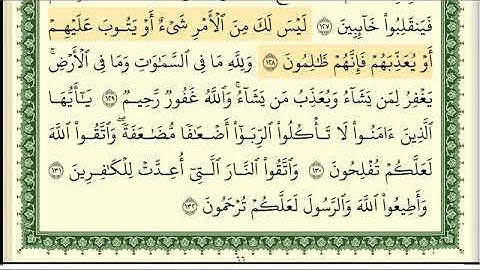 فَيَنقَلِبُوا۟ خَآئِبِينَ ١٢٧ لَيْسَ لَكَ مِنَ ٱلْأَمْرِ شَىْءٌ أَوْ يَتُوبَ عَلَيْهِمْ
أَوْ يُعَذِّبَهُمْ فَإِنَّهُمْ ظَـٰلِمُونَ ١٢٨ وَلِلَّهِ مَا فِى ٱلسَّمَـٰوَٰتِ وَمَا فِى ٱلْأَرْضِ ۚ
يَغْفِرُ لِمَن يَشَآءُ وَيُعَذِّبُ مَن يَشَآءُ ۚ وَٱللَّهُ غَفُورٌ رَّحِيمٌ ١٢٩ يَـٰٓأَيُّهَا
ٱلَّذِينَ ءَامَنُوا۟ لَا تَأْكُلُوا۟ ٱلرِّبَوٰٓا۟ أَضْعَـٰفًا مُّضَـٰعَفَةً ۖ وَٱتَّقُوا۟ ٱللَّهَ
لَعَلَّكُمْ تُفْلِحُونَ ١٣٠ وَٱتَّقُوا۟ ٱلنَّارَ ٱلَّتِىٓ أُعِدَّتْ لِلْكَـٰفِرِينَ ١٣١
وَأَطِيعُوا۟ ٱللَّهَ وَٱلرَّسُولَ لَعَلَّكُمْ تُرْحَمُونَ ١٣٢
٦٦